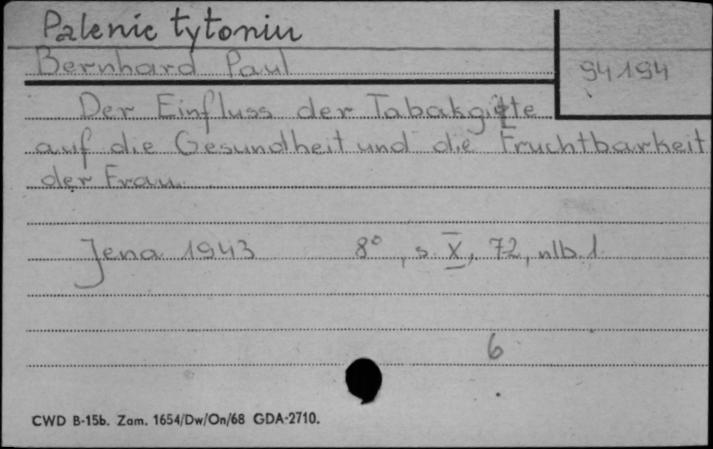 Palenie tytoniu
Bernhard Paul
94194
Der Einfluss der Tabakgifte
auf die Gesundheit und die Fruchtbarkeit
der Frau.
Jena 1943 8°, s. X, 72, nlb. 1
6
CWD B-15b. Zam. 1654/Dw/On/68 GDA-2710.